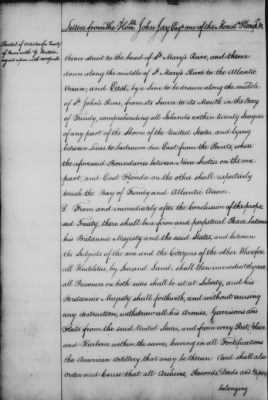 Letters from the Honble John Jay Esqr one of the
thence strait to the head of St Mary's River, and thence
down along the middle of St Mary's River to the Atlantic
Ocean; and East, by a Line to be drawn along the middle
of St John's River, from its Source to its Mouth in the Bay
of Fundy, comprehending all Islands within twenty Leagues
of any part of the Shores of the United States, and lying
between Lines to be drawn due East from the Points, where
the aforesaid Boundaries between Nova Scotia on the one
part, and East Florida on the other shall respectively
touch the Bay of Fundy and Atlantic Ocean.
From and immediately after the Conclusion of the propo
sed Treaty, there shall be a firm and perpetual Peace between
his Britannic Majesty and the said States, and between
the Subjects of the one and the Citizens of the other. Wherefore
all Hostilities, by Sea and Land, shall then immediately cease,
all Prisoners on both sides shall be set at Liberty, and his
Britannic Majesty shall forthwith, and without causing
any destruction, withdraw all his Armies, Garrisons and
Fleets from the said United States, and from every Post, Place
and Harbour within the same; leaving in all Fortifications
the American Artillery that may be therein: And shall also
order and Cause that all Archives, Records, Deeds and Papers
belonging